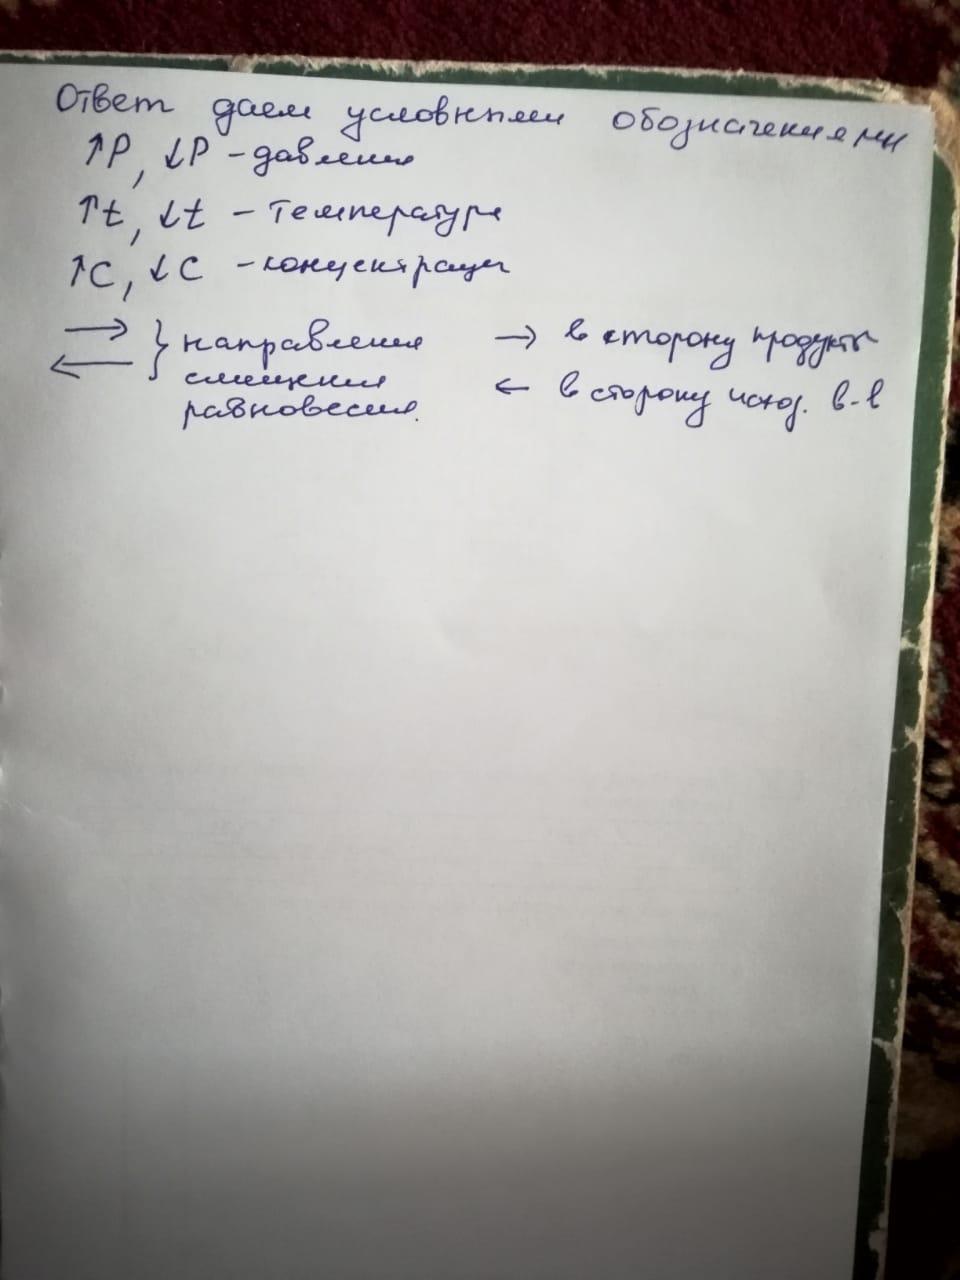 Ответ даем условными обозначениями
↑P, ↓P - давления
↑t, ↓t - температура
↑C, ↓C - концентрация
→ ← } направления смещения равновесия.
→ в сторону продукты
← в сторону исход. в-в